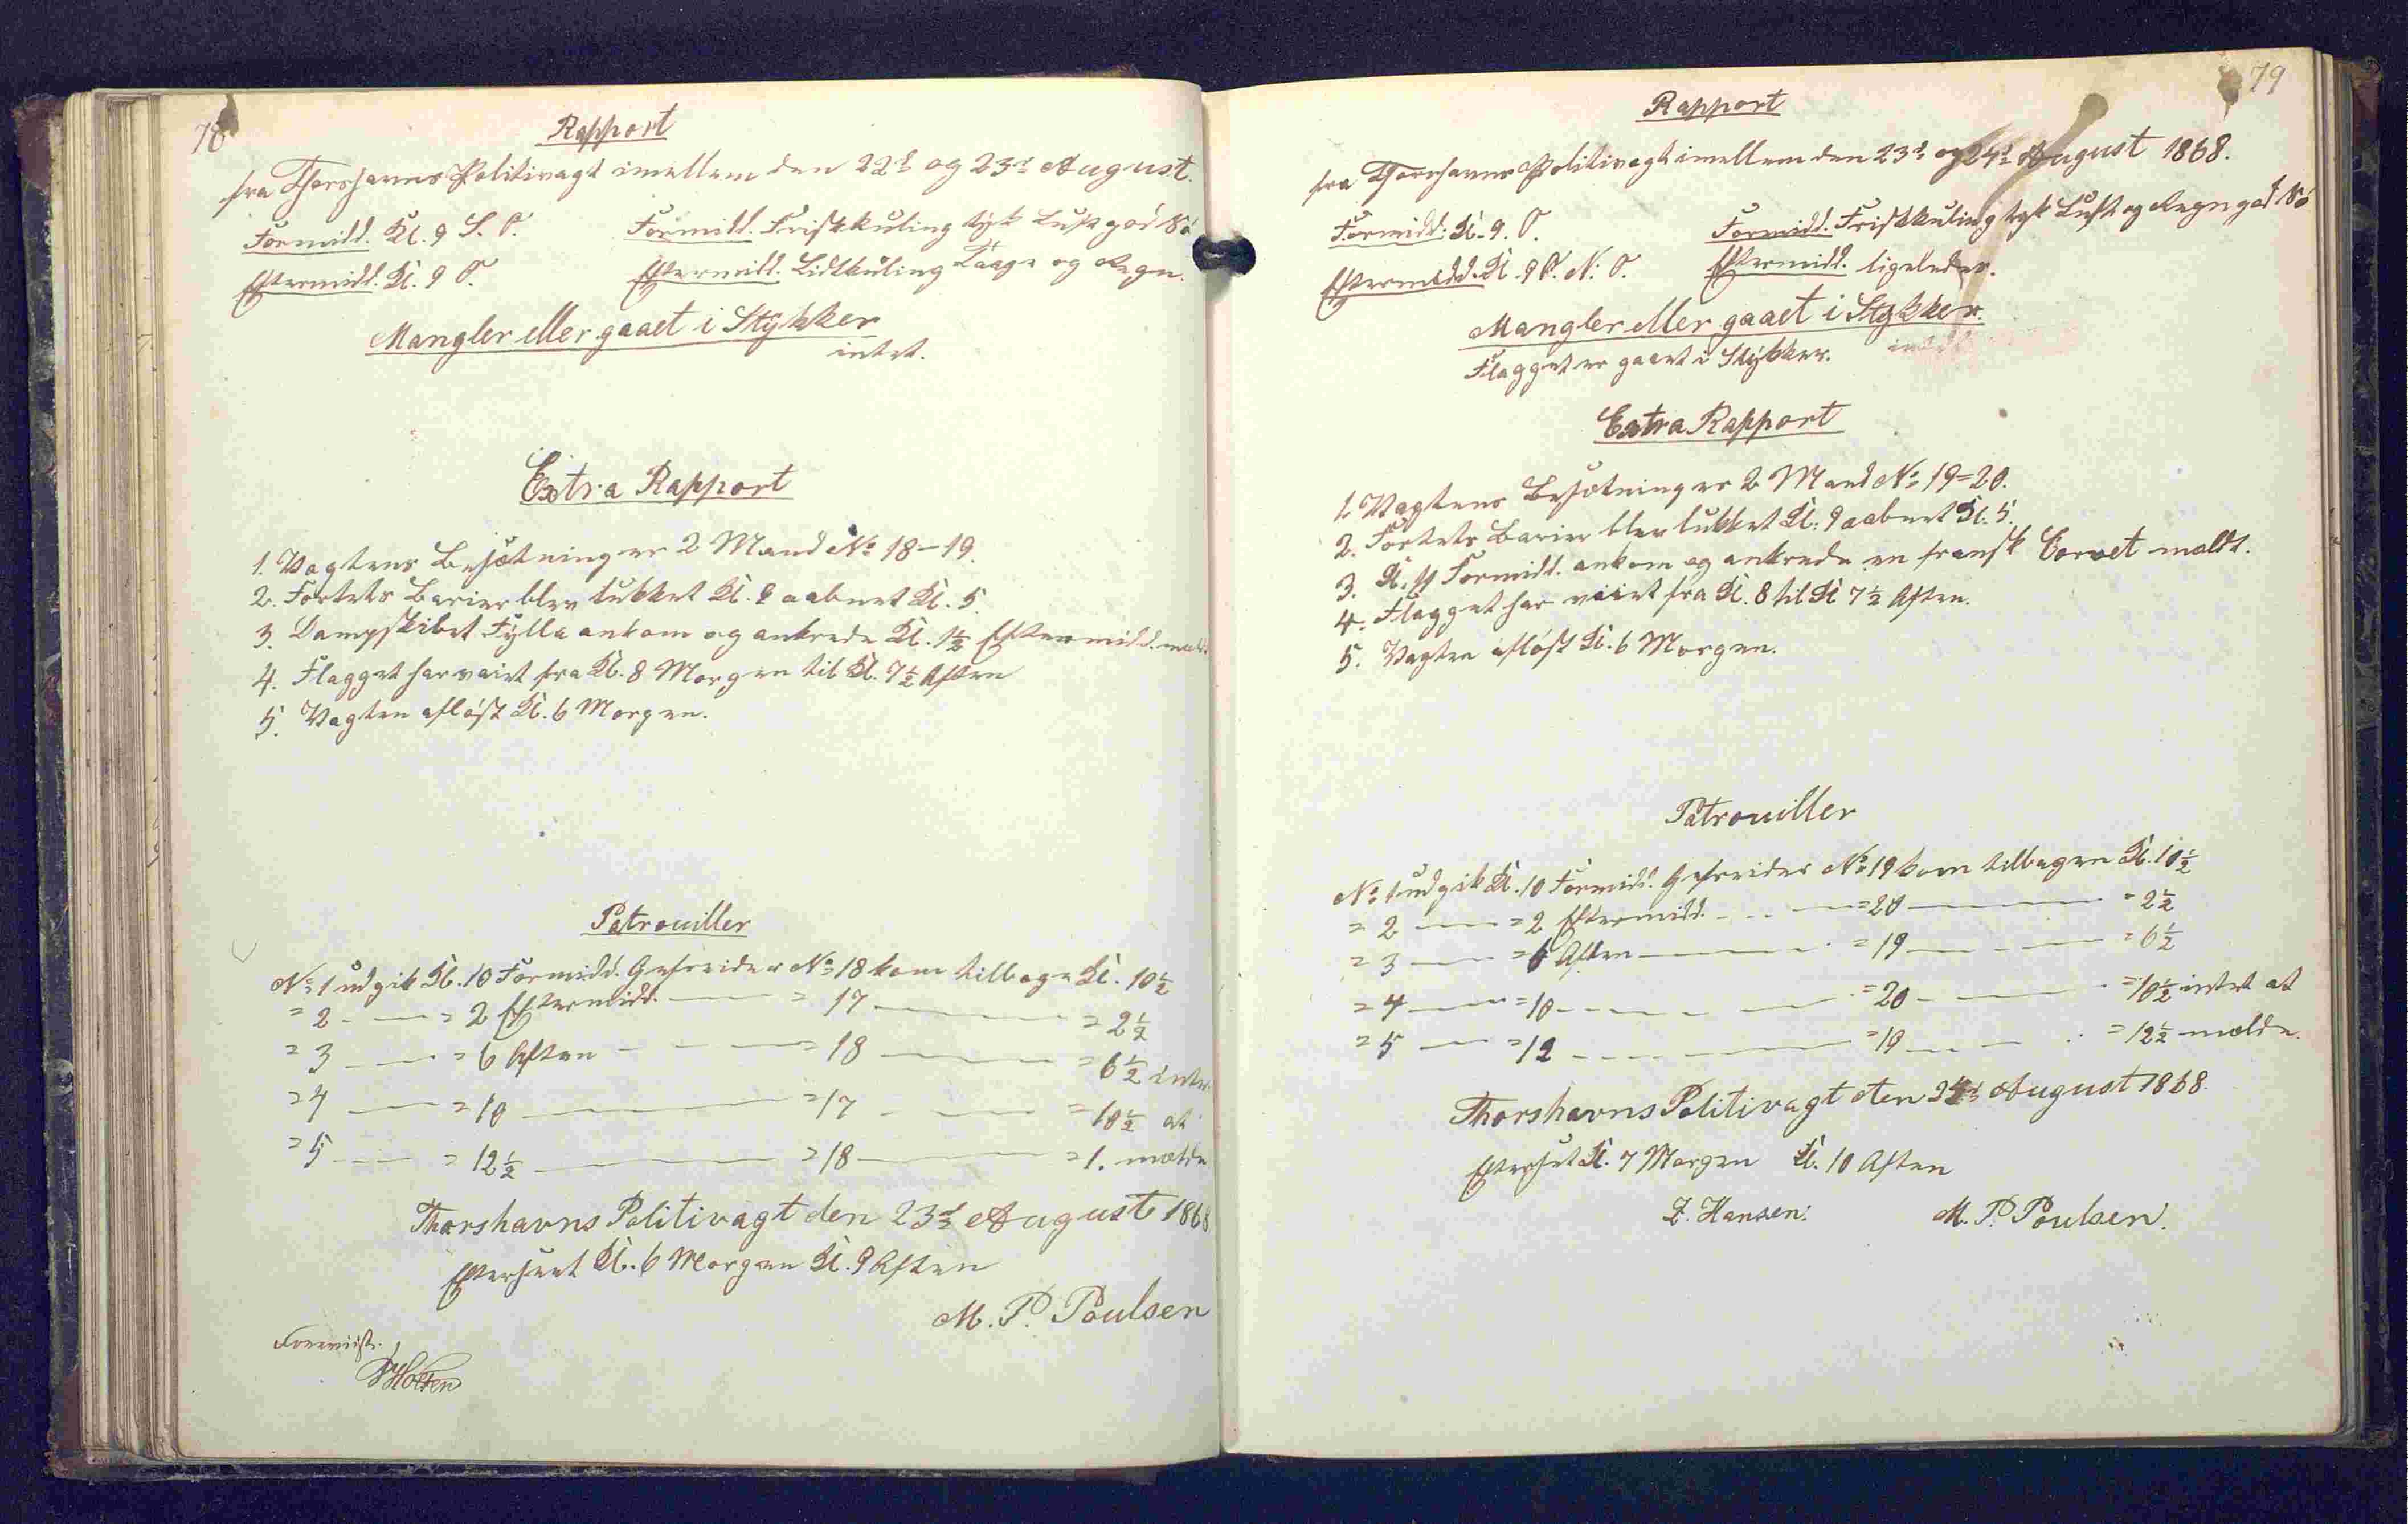 78
Rapport
fra Thorshavns Politivagt imellem den 22d og 23d August.
Formidd. Kl. 9 S. O.
Formidd. Friskkuling tyk Luft god Sö
Eftermidd. Kl. 9 O.
Eftermidd. Lidtkuling Taage og Regn.
Mangler eller gaaet i Stykker
intet.
Extra Rapport
1. Vagtens Besætning er 2 Mand No 18-19.
2. Fortets Barier blev lukket Kl. 9 aabnet Kl. 5.
3. Dampskibet Fylla ankom og ankrede Kl. 1½ Eftermidd.
4. Flagget har vaiet fra Kl. 8 Morgen til Kl. 7½ Aften
5. Vagten aflöst Kl. 6 Morgen.
Patrouiller
No 1 udgik Kl. 10 Formidd. Gefreider No 18 kom tilbage Kl. 10½
= 2 — = 2 Eftermidd. — = 17 — = 2½
= 3 — = 6 Aften — = 18 — = 6½ intet
= 4 — = 10 — = 17 — = 10½ at
= 5 — = 12½ — = 18 — = 1. melde
Thorshavns Politivagt den 23d August 1868
Efterseet Kl. 6 Morgen Kl. 9 Aften
M. P. Poulsen
Foreviist.
Holten
79
Rapport
fra Thorshavns Politivagt imellem den 23d og 24d August 1868.
Formidd. Kl. 9. O.
Formidd. Friskkuling tyk Luft og Regn god Sö
Eftermidd. Kl. 9 O. N. O.
Eftermidd. ligeledes.
Mangler eller gaaet i Stykker.
Flagget er gaaet i Stykker.
Extra Rapport
1. Vagtens Besætning er 2 Mand No 19=20.
2. Fortets Barier blev lukket Kl. 9 aabnet Kl. 5.
3. Kl. 11 Formidd. ankom og ankrede en fransk Corvet meldt.
4. Flagget har vaiet fra Kl. 8 til Kl 7½ Aften.
5. Vagten aflöst Kl. 6 Morgen.
Patrouiller
No 1 udgik Kl. 10 Formidd. Gefreider No 19 kom tilbagen Kl. 10½
= 2 — = 2 Eftermidd. — = 20 — = 2½
= 3 — = 6 Aften — = 19 — = 6½
= 4 — = 10 — = 20 — = 10½ intet at
= 5 — = 12 — = 19 — = 12½ melde.
Thorshavns Politivagt den 24d August 1868.
Efterset Kl. 7 Morgen Kl. 10 Aften
Z. Hansen. M. P. Poulsen.